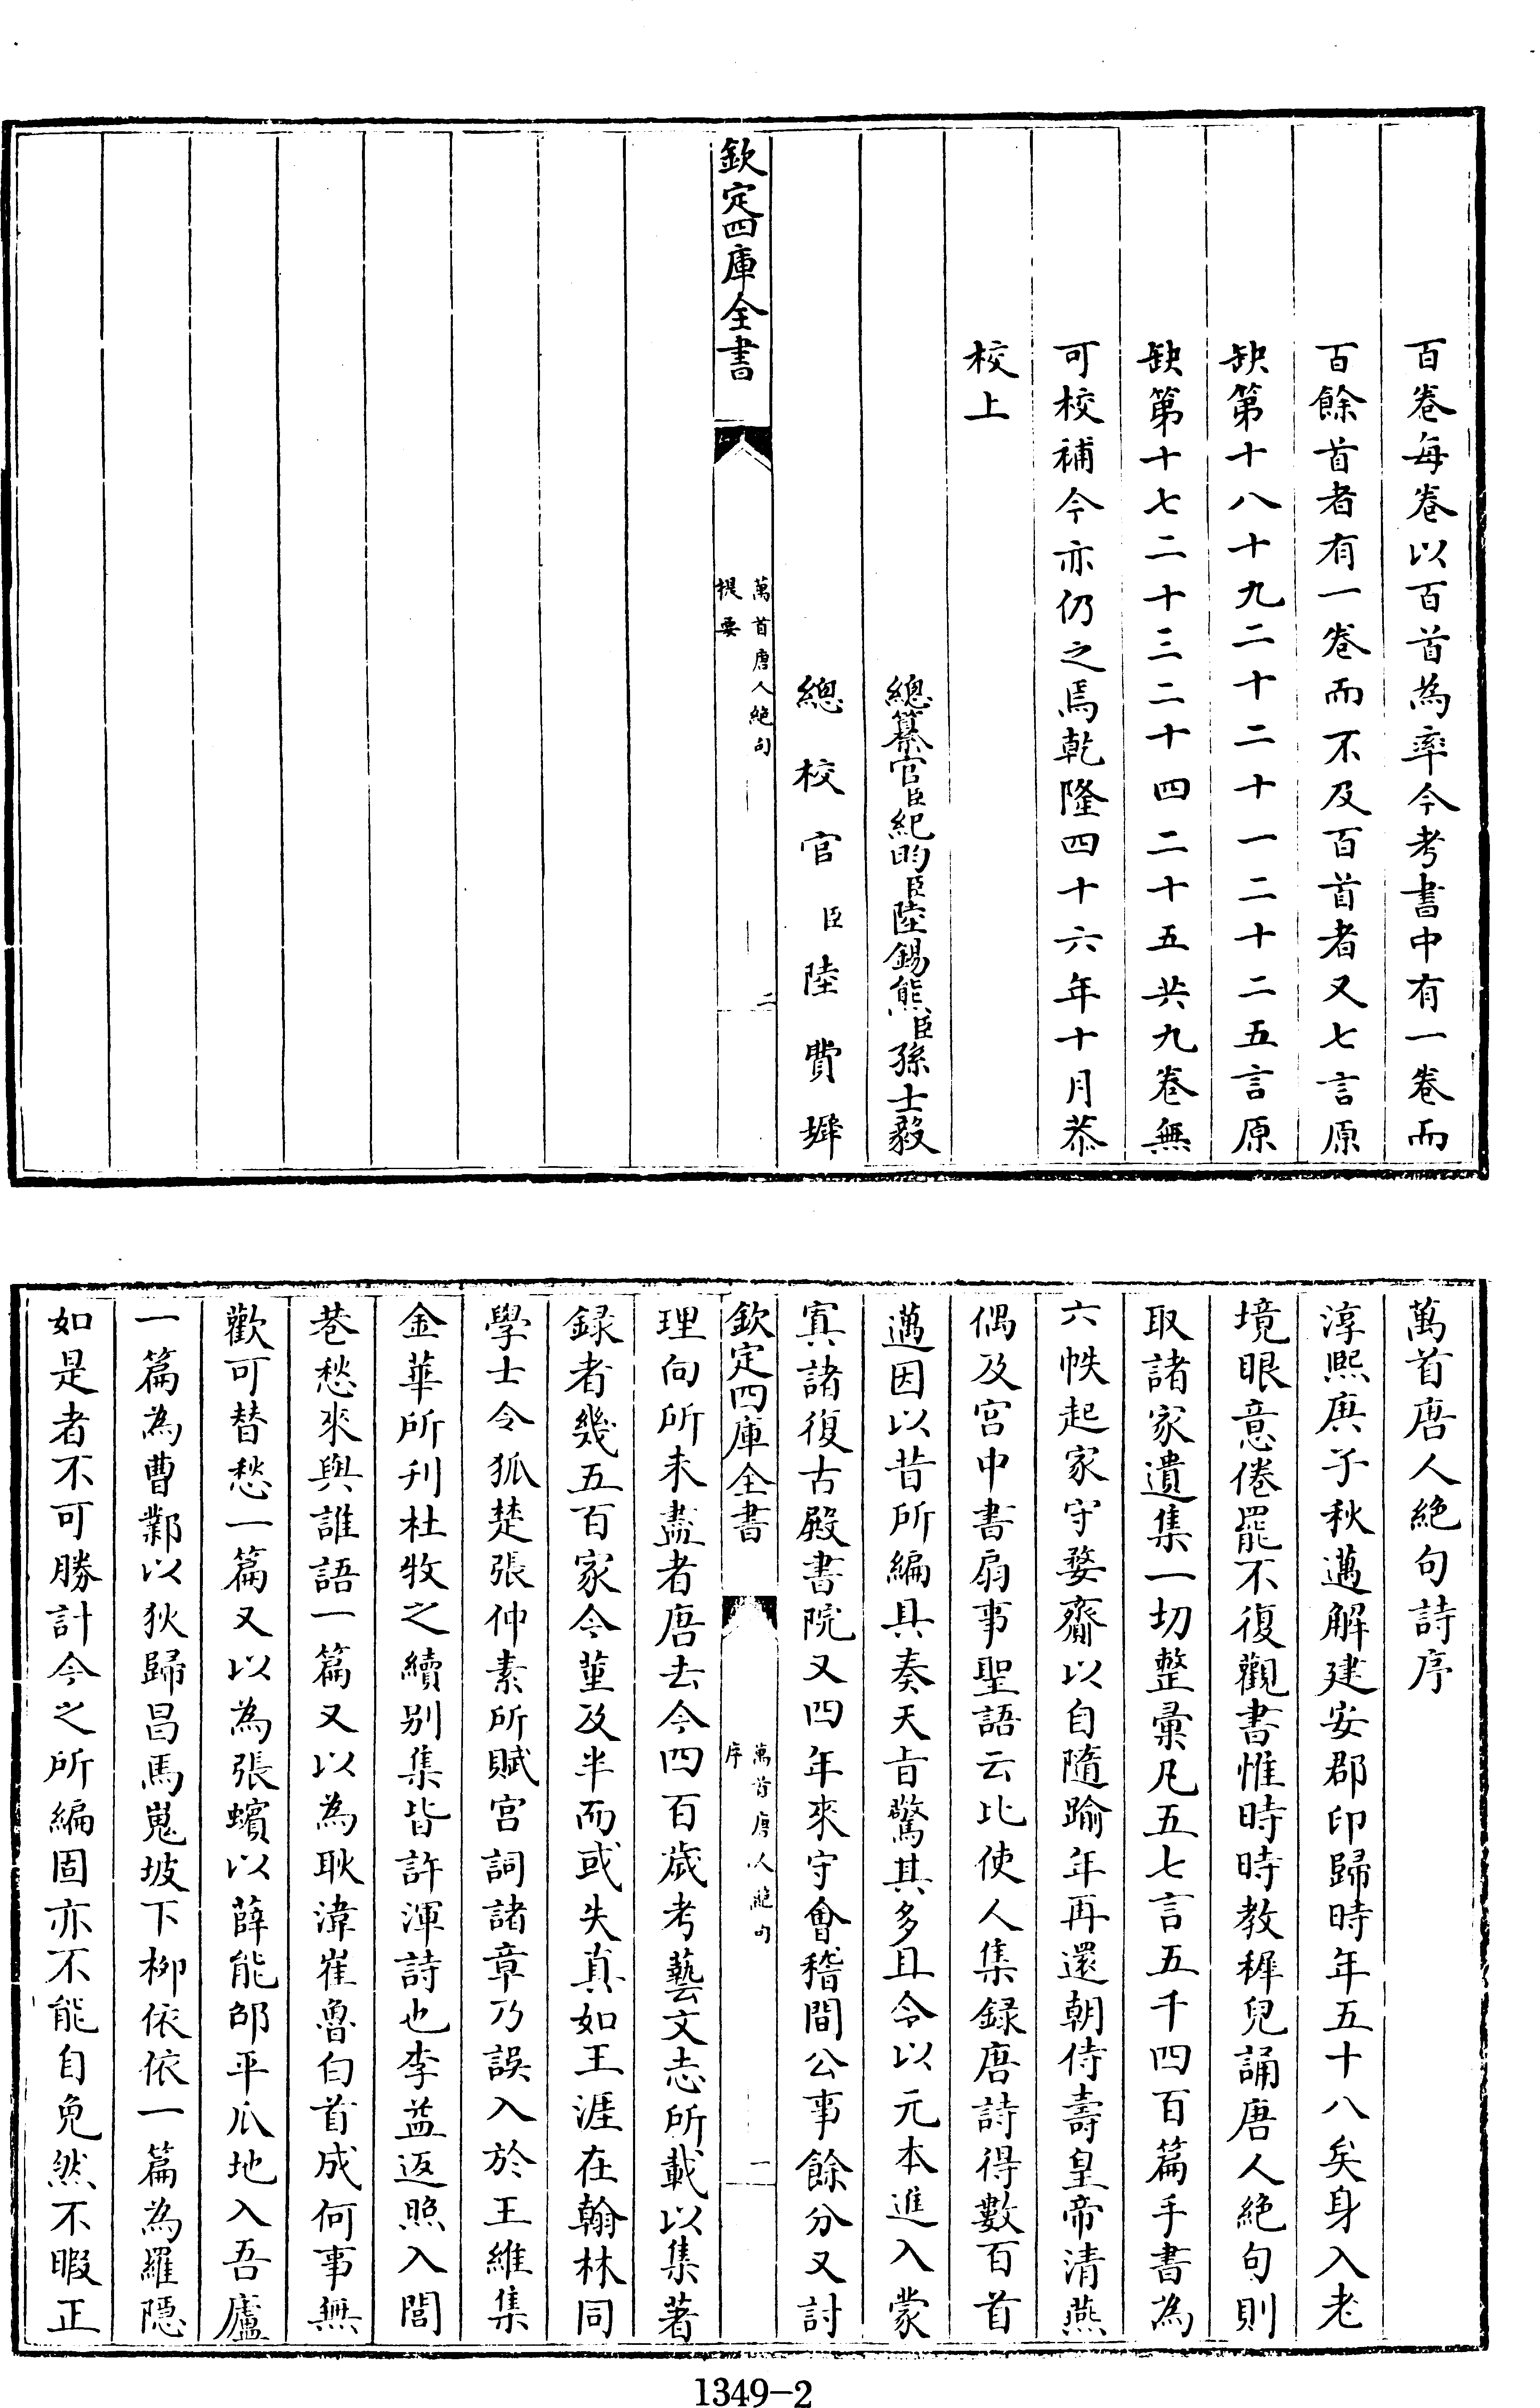 百卷每卷以百首為率今考書中有一卷而
百餘首者有一卷而不及百首者又七言原
缺第十八十九二十二十一二十二五言原
缺第十七二十三二十四二十五共九卷無
可校補今亦仍之焉乾隆四十六年十月恭
校上
總纂官臣紀昀臣陸錫熊臣孫士毅
總校官臣陸費墀
欽定四庫全書
萬首唐人絶句
提要
二
萬首唐人絶句詩序
淳熙庚子秋邁解建安郡印歸時年五十八矣身入老
境眼意倦罷不復觀書惟時時教穉兒誦唐人絶句則
取諸家遺集一切整彙凡五七言五千四百篇手書為
六帙起家守婺齎以自隨踰年再還朝侍壽皇帝清燕
偶及宫中書扇事聖語云比使人集録唐詩得數百首
邁因以昔所編具奏天㫖驚其多且令以元本進入蒙
寘諸復古殿書院又四年來守會稽間公事餘分又討
欽定四庫全書
萬首唐人絶句
序
一
理向所未盡者唐去今四百歲考藝文志所載以集著
録者幾五百家今堇及半而或失真如王涯在翰林同
學士令狐楚張仲素所賦宫詞諸章乃誤入於王維集
金華所刊杜牧之續别集皆許渾詩也李益返照入閭
巷愁來與誰語一篇又以為耿湋崔魯白首成何事無
歡可替愁一篇又以為張蠙以薛能邵平瓜地入吾廬
一篇為曹鄴以狄歸昌馬嵬坡下柳依依一篇為羅隱
如是者不可勝計今之所編固亦不能自免然不暇正
1349-2